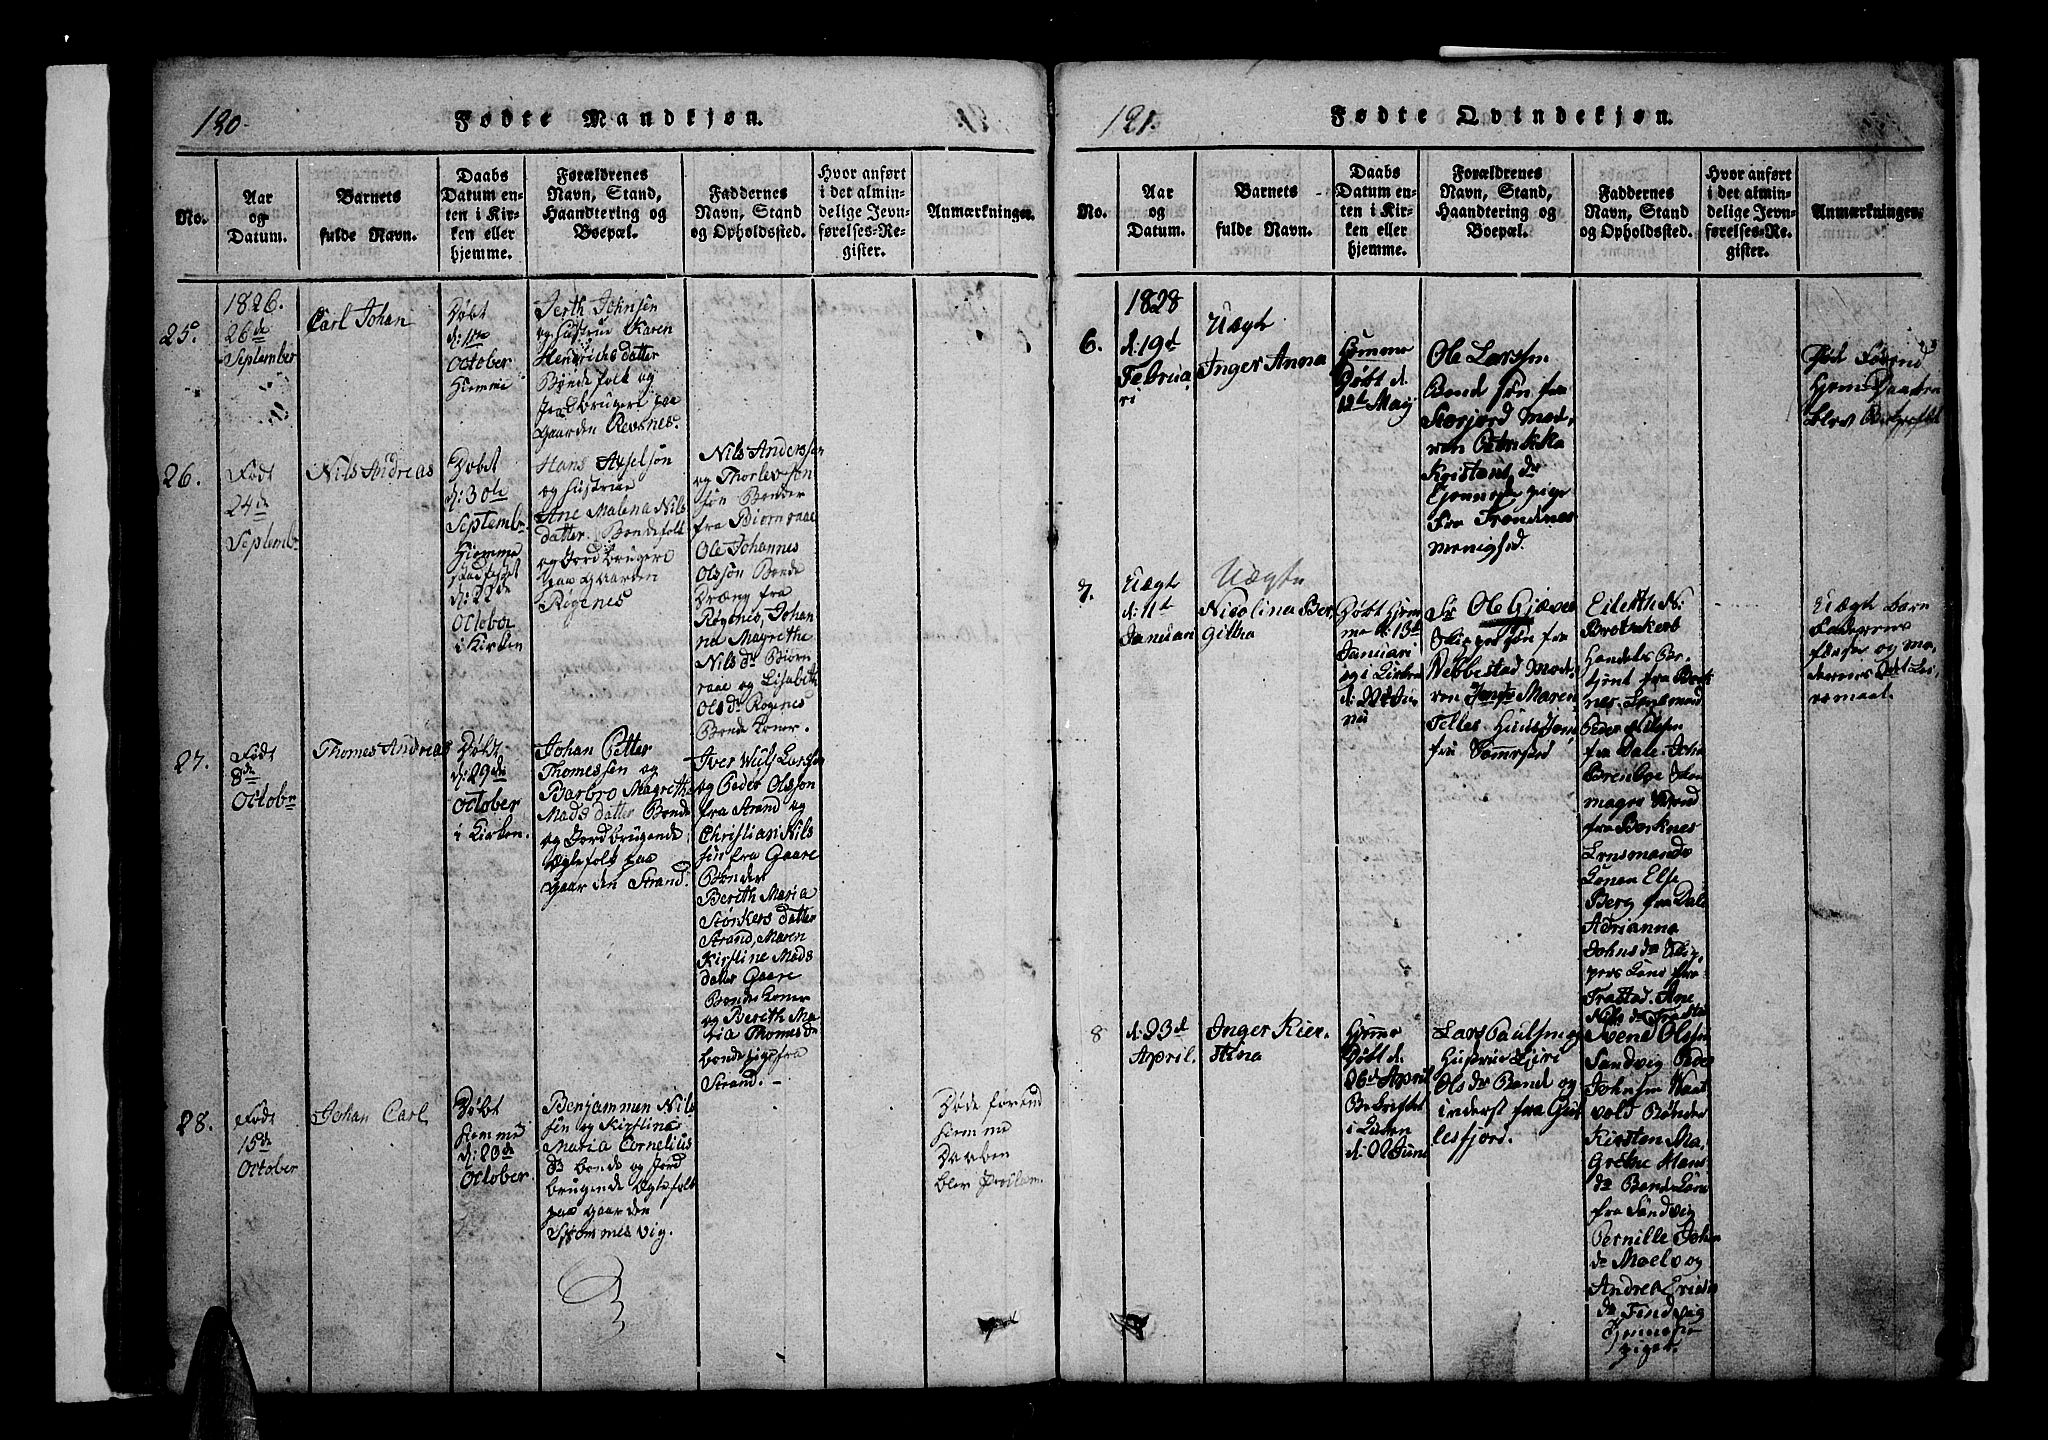 120.
Fødte Mandkjøn.
No.
Aar
og
Datum.
Barnets
fulde Navn.
Daabs
Datum en-
ten i Kir-
ken eller
hjemme.
Forældrenes
Navn, Stand,
Haandtering og
Boepæl.
Faddernes
Navn, Stand
og Opholdssted.
Hvor anført
i det almin-
delige Jevn-
førelses-Re-
gister.
Anmærkninger.
25.
1826.
26de
September
Carl Johan
Døbt
October
Hiemme
Johnsen
og Hustrue Karen
Hendrichsdatter
Bønde folk og
Jordbrugere paa
Gaarden Revsnes.
26.
Født
24de
Septembr
Nils Andreas
Døbt
d: 30te
Septembr
Hiemme
d: 22de
October
i Kirken
Hans Axelsøn
og Hustrue
Ane Malena Nils
datter. Bondefolk
og Jordbrugere
paa Gaarden
Røgenes
Nils Anderssøn
og Thorlevsøn
Bønder
fra Biornraae
Ole Johannes
Olssøn Bonde
Dræng fra
Røgenes, Johan
na Magrethe
Nils dr Biorn
raae og Lisabeth
Ols dr Røgenes
Bonde Koner.
27.
Født
8de
Octobr
Thomes Andreas
Døbt
d: 29de
October
i Kirken.
Johan Petter
Thomessøn og
Barbro Magretha
Madsdatter Bonde
og Jordbrugende
Ægtefolk paa
Gaarden Strand.
Iver Wulf Larssøn
og Peder Olssøn
fra Strand og
Christian Nils
søn fra Gaare
Bønder
Berith Maria
Størkersdatter
Strand, Maren
Kirstine Mads
datter Gaare
Bonde Koner
og Berith Ma-
ria Thomesdr
bonde pige fra
Strand. -
28.
Født
15de
October
Johan Carl
Døbt
hiemme
d: 23de
October.
Benjammen Nils
søn og Kirstina
Maria Cornelius
dr bonde og Jord
brugende Ægtefolk
paa Gaarden
Stømmesvig.
Døde forend
hiemme
Daaben
blev
121.
Fødte Qvindekjøn.
No.
Aar
og
Datum.
Barnets
fulde Navn.
Daabs
Datum en-
ten i Kir-
ken eller
hjemme.
Forældrenes
Navn, Stand,
Haandtering og
Boepæl.
Faddernes
Navn, Stand
og Opholdssted.
Hvor anført
i det almin-
delige Jevn-
førelses-Re-
gister.
Anmærkninger.
6.
1828
d: 19d
Februa
ri
Uægte
Inger Anna
Hjemme
Døbt d.
12t May
Ole Larssen
Bonde søn fra
Storjord Mode-
ren
Tjenneste pige
Fra Trondenes
menighed.
Død Førend
Hjeme Daaben
blev
7.
Uægte
d: 11t
Januari
Uægte
Nicolina Ber
Githa
Døbt Hjem-
me d: 13d
Januari
og i Kirken
d: 22d Ju-
ni
Sr Ole Gjæver
Skippersøn fra
Webbestad Mode-
ren Jomfr Maren
Felles
fra
Eilerth N:
Brotnkerb
Handels Be-
tjent fra Berk
nes. Lensmand
Peder Nilssen
fra Dale. Johan
fra Berknes
Lensmands
Konen Else
Berg fra Dale
Adrianna
Johns dr Skip-
pers Kone fra
Frastad. Ane
Nils dr Frastad
Uægte Barn
Faderens
første og Mo-
dernes
8
d: 23d
April.
Inger Kier-
stina
Hjemme
Døbt d.
26d April
Bekreftet
i Kirken
d: 22 Juni
Lars Paulsen og
Hustrue Siri
Ols dr Bonde og
inderst fra Gul-
lesfjord.
Svend Olssen
Sandvig Peder
Johnsen Waat
vold Bønder
Kirsten Ma-
Grethe Hans
dr Bonde Kone
fra Sandvig
Pernille Johan
dr Moelv og
dr Findsvig
Tjenneste
piger.